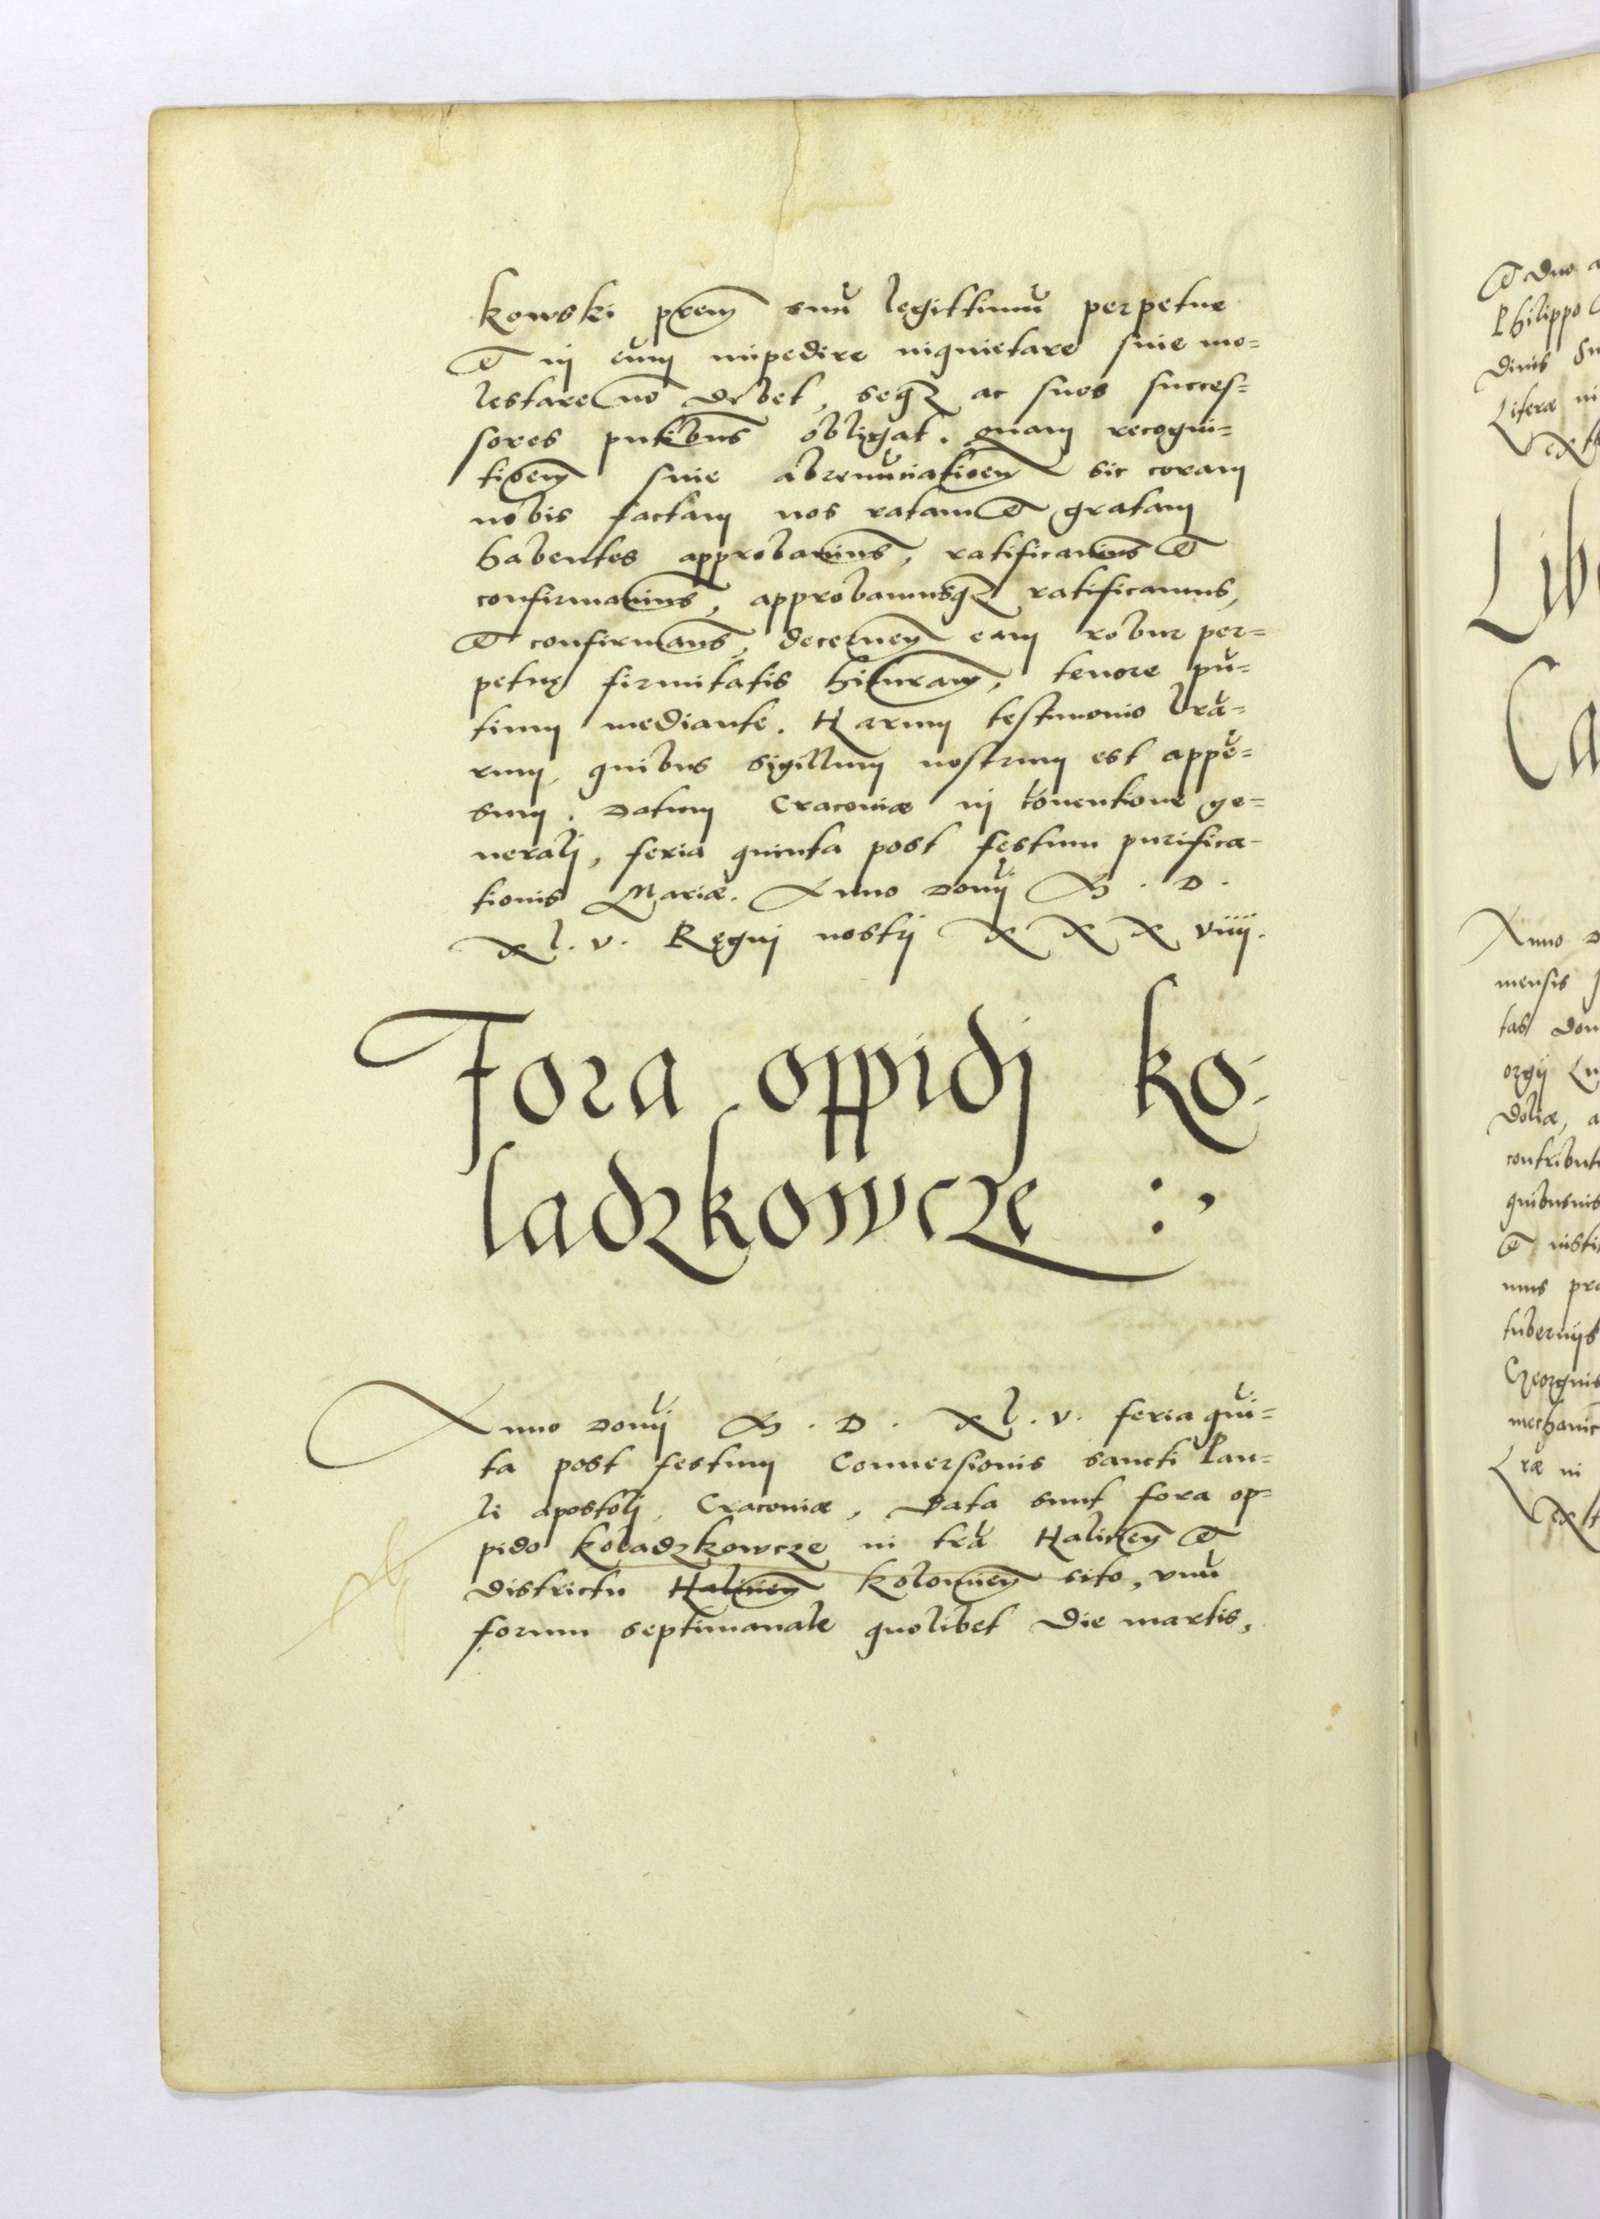 kowski prem suu legittimu perpetue
et in eum impedire inquietare siue mo=
lestare no debet, seq3 ac suos succes=
sores pntibus obligat. quam recogni=
tioem siue abrenuciatioem sic coram
nobis factam nos ratam et gratam
habentes approbauimus, ratificauimus et
confirmauimus, approbamusq3 ratificamus,
et confirmams, decernen eam robur per=
petuę firmitatis hituram, tenore pn=
tium mediante. Harum testimonio lra=
rum, quibus sigillum nostrum est appe=
sum. Datum Cracouiæ in conuentione ge=
neralj, feria quinta post festum purifica=
tionis Mariæ. Anno domj M. D.
Xl. v. Regnj nostrj X X X viiij.
Fora oppidj Ko-
ladzkowcze :,
Anno domj M. D. Xl. v. feria qui=
ta post festum Conuersionis sancti Pau=
li apostolj, Cracouiæ, Data sunt fora op=
pido Koladzkowcze in tra Halicien et
districtu Halicien Kolomien sito, vnu
forum septimanale quolibet die martis,
et dno
Philippo
diuis
Literæ in
Lib
Ca
Anno D
mensis
tas dom
orgij
doliæ, a
contribut
quibusuis
et insti
mus pra
tubernijs
Georgius
mechanic
Lræ in